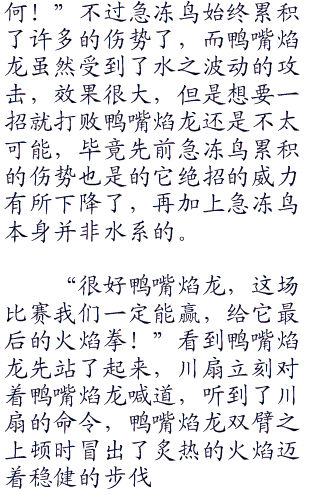 何！”不过急冻鸟始终累积
了许多的伤势了，而鸭嘴焰
龙虽然受到了水之波动的攻
击，效果很大，但是想要一
招就打败鸭嘴焰龙还是不太
可能，毕竟先前急冻鸟累积
的伤势也是的它绝招的威力
有所下降了，再加上急冻鸟
本身并非水系的。
“很好鸭嘴焰龙，这场
比赛我们一定能赢，给它最
后的火焰拳！”看到鸭嘴焰
龙先站了起来，川扇立刻对
着鸭嘴焰龙喊道，听到了川
扇的命令，鸭嘴焰龙双臂之
上顿时冒出了炙热的火焰迈
着稳健的步伐